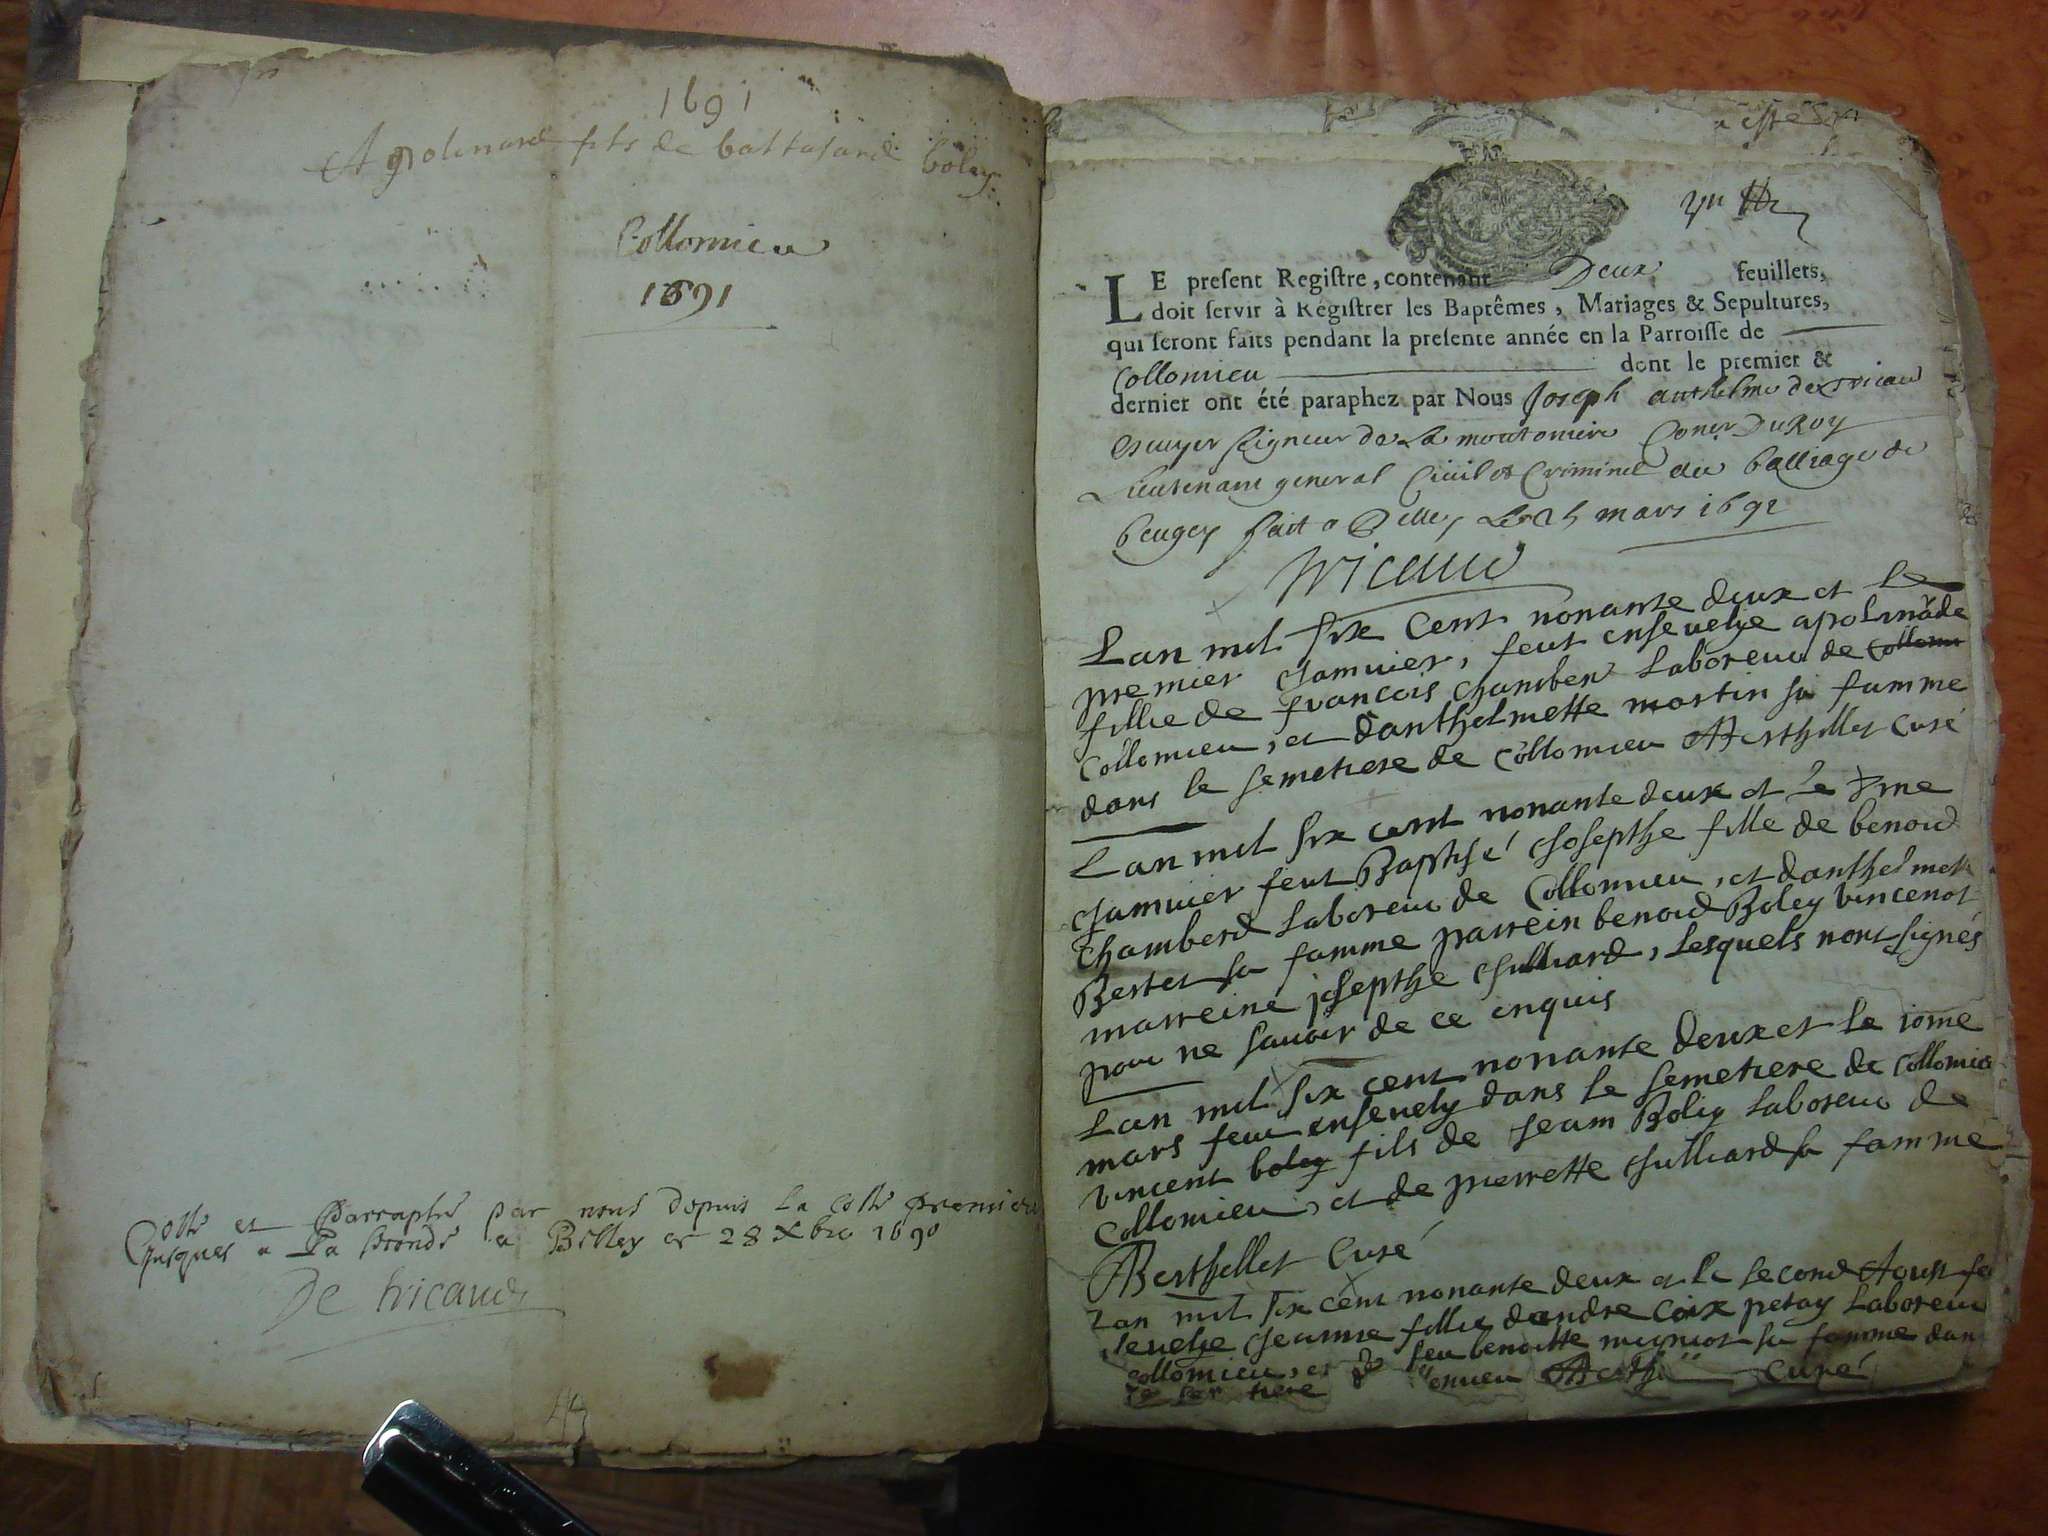 1691
Apolinard fils de baltasard boley
Collomieu
1691
Cotté et Parraphé par nous depuis la cotte premiere
jusques a la seconde a Belley ce 28 Xbre 1690
De tricaud
LE present Registre, contenant Deux feuillets,
doit servir à Régistrer les Baptêmes, Mariages & Sepultures,
qui seront faits pendant la presente année en la Parroisse de
Collomieu dont le premier &
dernier ont été paraphez par Nous Joseph anthelme de Tricaud
Escuyer seigneur de La moutoniere Coner Du Roy
Lieutenant general Civil et Criminel au balliage de
beugey fait a Belley Le mars 1692
Tricaud
Lan mil six Cent nonante deux et le
premier Janvier, feut ensevelye apolinade
fillie de francois Chamberd Laboreur de
Collomieu, et danthelmette martin sa famme
dans le semetiere de Collomieu Berthellet Curé
Lan mil six cent nonante deux et le
Janvier feut Baptisé Josepthe fille de benoid
Chamberd Laboreur de Collomieu, et danthelmette
Bertet sa famme parrein benoid Boley vincenot
marreine josepthe Julliard, Lesquels nont signés
pour ne savoir de ce enquis
Lan mil six cent nonante deux et le 10me
mars feut ensevely dans le semetiere de Collomieu
vincent boley fils de Jeam Boley Laboreur de
Collomieu, et de pierrette Julliard sa famme
Berthellet Curé
Lan mil six cent nonante deux et le second Aoust
sevelye Jeanne fillie dandre Coix petay Laboreur
collomieu, et feu benoitte migniot sa femme dan
Curé